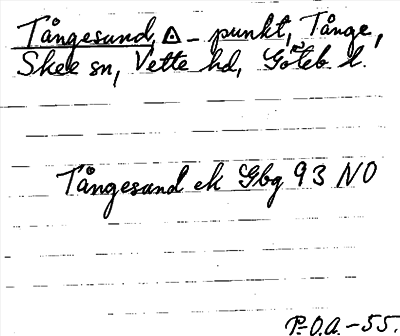 Tångesund, ◬ - punkt, Tånge,
Skee sn, Vette hd, Göteb. l.
Tångesund ek Gbg 93 NO
P.-O.A. -55.